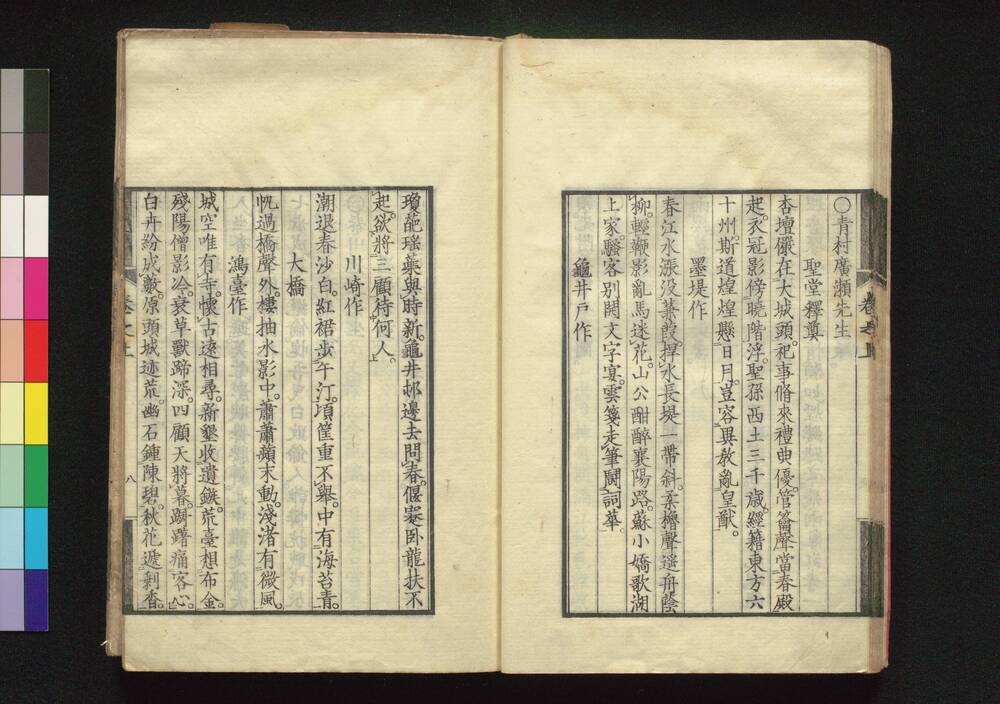 ○青村廣瀬先生
聖堂釋奠
杏壇儼在大城頭。祀事脩來禮典優。管籥聲當春殿
起。衣冠影傍曉階浮。聖孫西土三千歳。經籍東方六
十州。斯道煌煌懸日月。豈容異教亂皇猷。
墨堤作
春江水漲没蒹葭。捍水長堤一帶斜。柔櫓聲遥舟蔭
柳。輕鞭影亂馬迷花。山公酣醉襄陽路。蘇小嬌歌湖
上家。騷客別開文字宴。雲箋走筆鬪詞華。
龜井戸作
瓊葩瑶蘂與時新。龜井邨邊去問春。偃蹇臥龍扶不
起。欲將三顧待何人。
川崎作
潮退春沙白。紅裙歩午汀。頃筐重不擧。中有海苔青。
大橋
帆過橋聲外。樓抽水影中。蕭蕭蘋末動。淺渚有微風。
鴻臺作
城空唯有寺。懷古遠相尋。新墾收遺鏃。荒臺想布金。
殘陽僧影冷。衰草獸蹄深。四顧天將暮。躑躅痛客心。
白卉紛成藪。原頭城迹荒。幽石鍾陳碧。秋花遞剩香。
卷之上
八